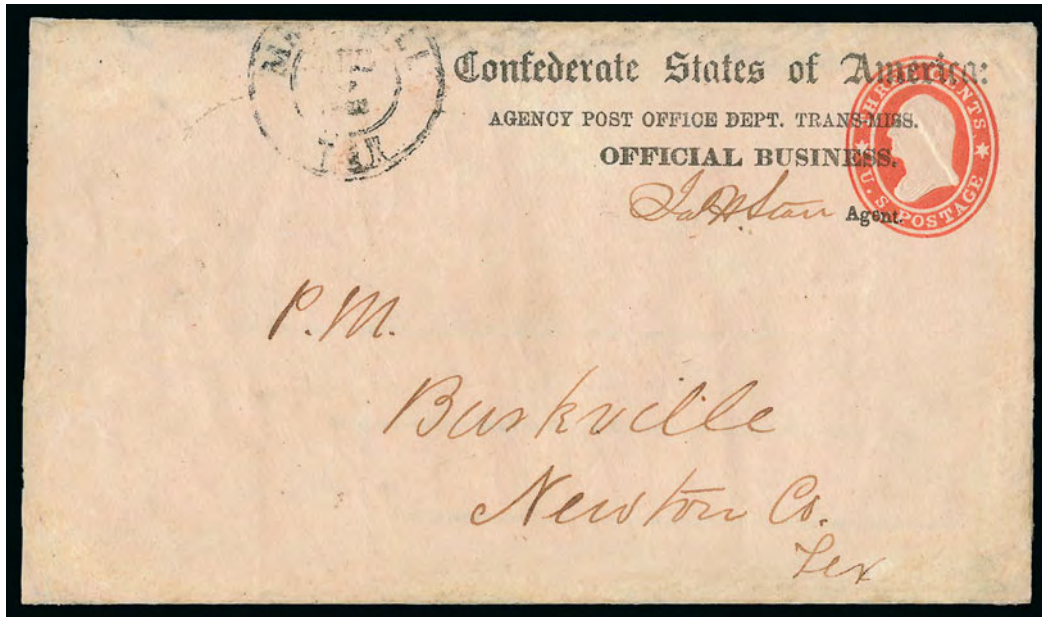 Confederate States of America:
AGENCY POST OFFICE DEPT. TRANS-MISS.
OFFICIAL BUSINESS,
Agent.
THREE CENTS.
U.S. POSTAGE
P.M.
Burkville
Newton Co.
Tex